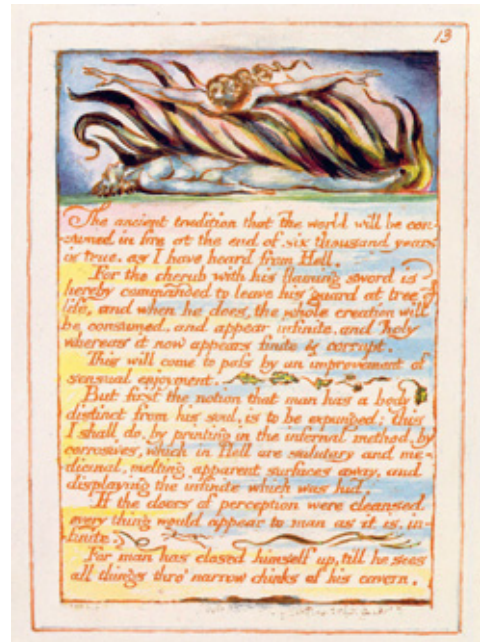 13
The ancient tradition that the world will be con-
-sumed in fire at the end of six thousand years
is true. as I have heard from Hell.
For the cherub with his flaming sword is
hereby commanded to leave his guard at tree of
life, and when he does, the whole creation will
be consumed, and appear infinite, and holy
whereas it now appears finite & corrupt.
This will come to pass by an improvement of
sensual enjoyment.
But first the notion that man has a body
distinct from his soul, is to be expunged; this
I shall do, by printing in the infernal method, by
corrosives, which in Hell are salutary and me-
-dicinal, melting apparent surfaces away, and
displaying the infinite which was hid.
If the doors of perception were cleansed
every thing would appear to man as it is, in-
-finite.
For man has closed himself up, till he sees
all things thro' narrow chinks of his cavern.